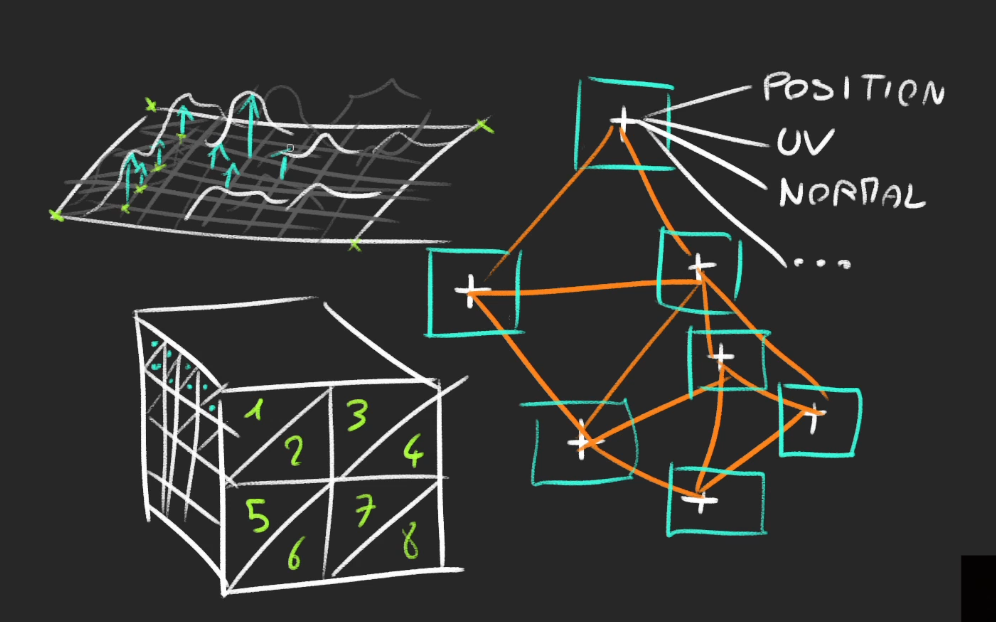 POSITION
UV
NORMAL
...
1 3
2 4
5 7
6 8